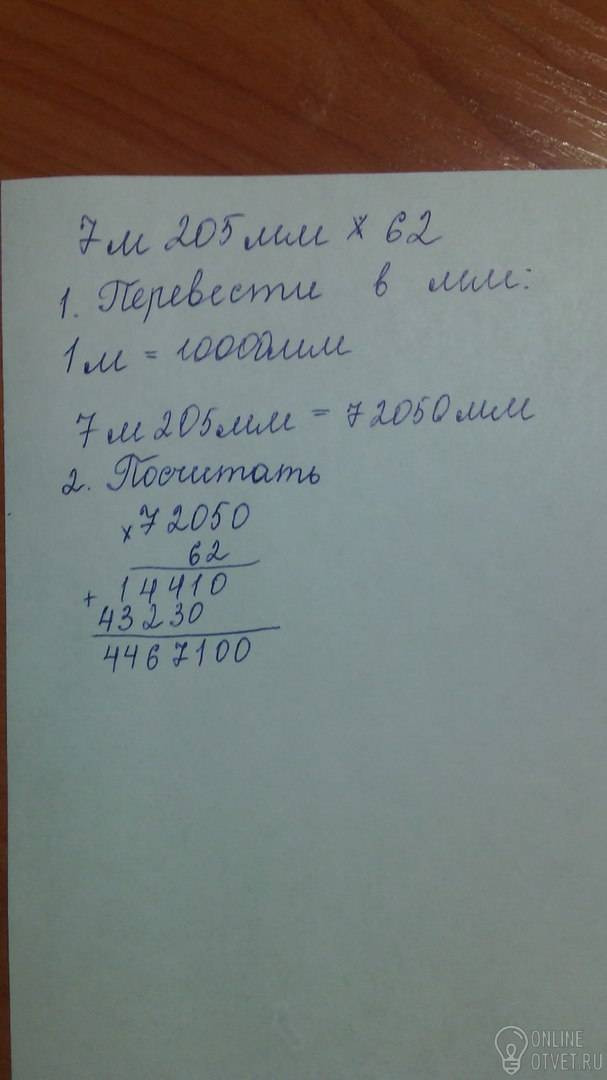 7м 205мм × 62
1. Перевести в мм:
1м = 10000мм
7м 205мм = 72050мм
2. Посчитать
× 72050
62
+ 14410
43230
4467100
ONLINE
OTVET.RU